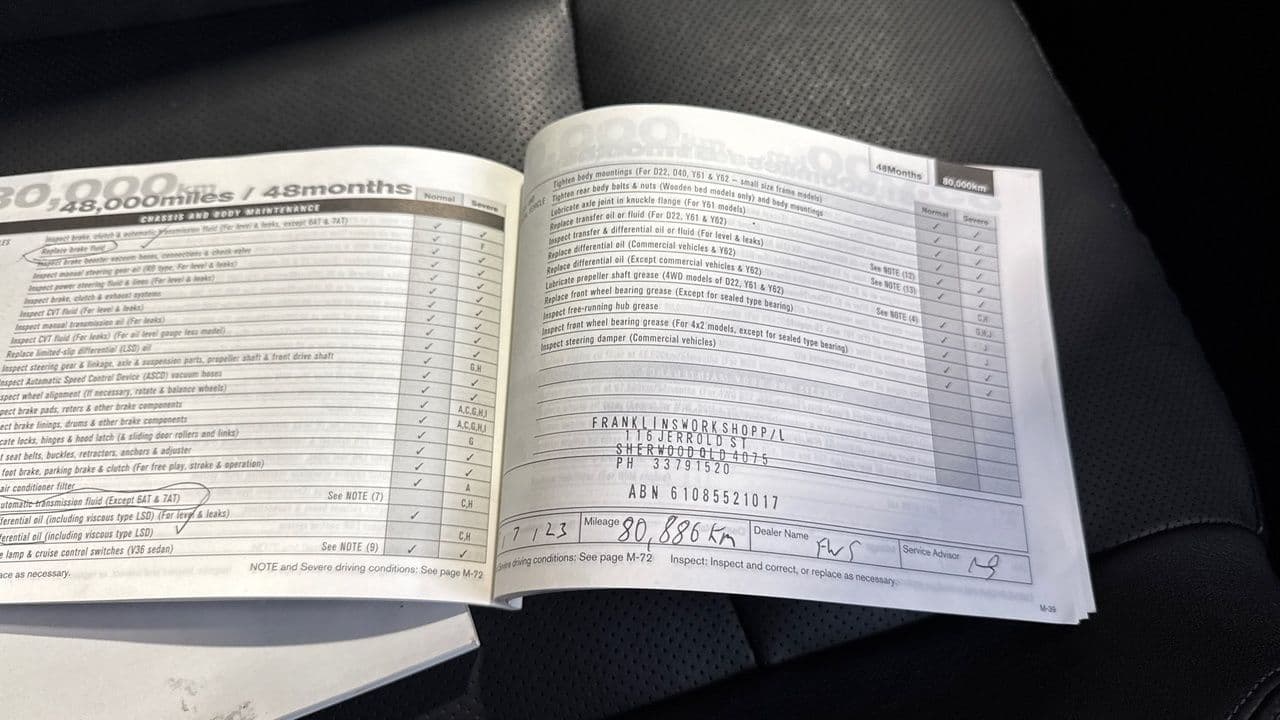 80,000km
48,000miles / 48months
CHASSIS AND BODY MAINTENANCE
Normal Severe
Inspect brake, clutch & automatic transmission fluid (For level & leaks, except 6AT & 7AT)
Replace brake fluid
Inspect brake booster vacuum hoses, connections & check valve
Inspect manual steering gear oil (RB type, For level & leaks)
Inspect power steering fluid & lines (For level & leaks)
Inspect brake, clutch & exhaust systems
Inspect CVT fluid (For level & leaks)
Inspect manual transmission oil (For leaks)
Inspect CVT fluid (For leaks) (For oil level gauge less model)
Replace limited-slip differential (LSD) oil G,H
Inspect steering gear & linkage, axle & suspension parts, propeller shaft & front drive shaft
nspect Automatic Speed Control Device (ASCD) vacuum hoses
spect wheel alignment (If necessary, rotate & balance wheels) A,C,G,H,I
pect brake pads, rotors & other brake components A,C,G,H,I
ect brake linings, drums & other brake components G
cate locks, hinges & hood latch (& sliding door rollers and links)
t seat belts, buckles, retractors, anchors & adjuster
foot brake, parking brake & clutch (For free play, stroke & operation) A
air conditioner filter C,H
utomatic transmission fluid (Except 6AT & 7AT) See NOTE (7)
ferential oil (including viscous type LSD) (For level & leaks) C,H
ferential oil (including viscous type LSD)
e lamp & cruise control switches (V36 sedan) See NOTE (9)
ace as necessary. NOTE and Severe driving conditions: See page M-72
48Months 80,000km
Normal Severe
Tighten body mountings (For D22, D40, Y61 & Y62 – small size frame models)
Tighten rear body bolts & nuts (Wooden bed models only) and body mountings
Lubricate axle joint in knuckle flange (For Y61 models)
Replace transfer oil or fluid (For D22, Y61 & Y62)
Inspect transfer & differential oil or fluid (For level & leaks)
Replace differential oil (Commercial vehicles & Y62) See NOTE (12)
Replace differential oil (Except commercial vehicles & Y62) See NOTE (13)
Lubricate propeller shaft grease (4WD models of D22, Y61 & Y62)
Replace front wheel bearing grease (Except for sealed type bearing) See NOTE (4)
Inspect free-running hub grease
Inspect front wheel bearing grease (For 4x2 models, except for sealed type bearing)
Inspect steering damper (Commercial vehicles)
FRANKLINSWORKSHOPP/L
116 JERROLD ST
SHERWOODQLD 4075
PH 33791520
ABN 61085521017
7 / 23 Mileage 80,886 km Dealer Name FWS Service Advisor
driving conditions: See page M-72 Inspect: Inspect and correct, or replace as necessary.
M-39